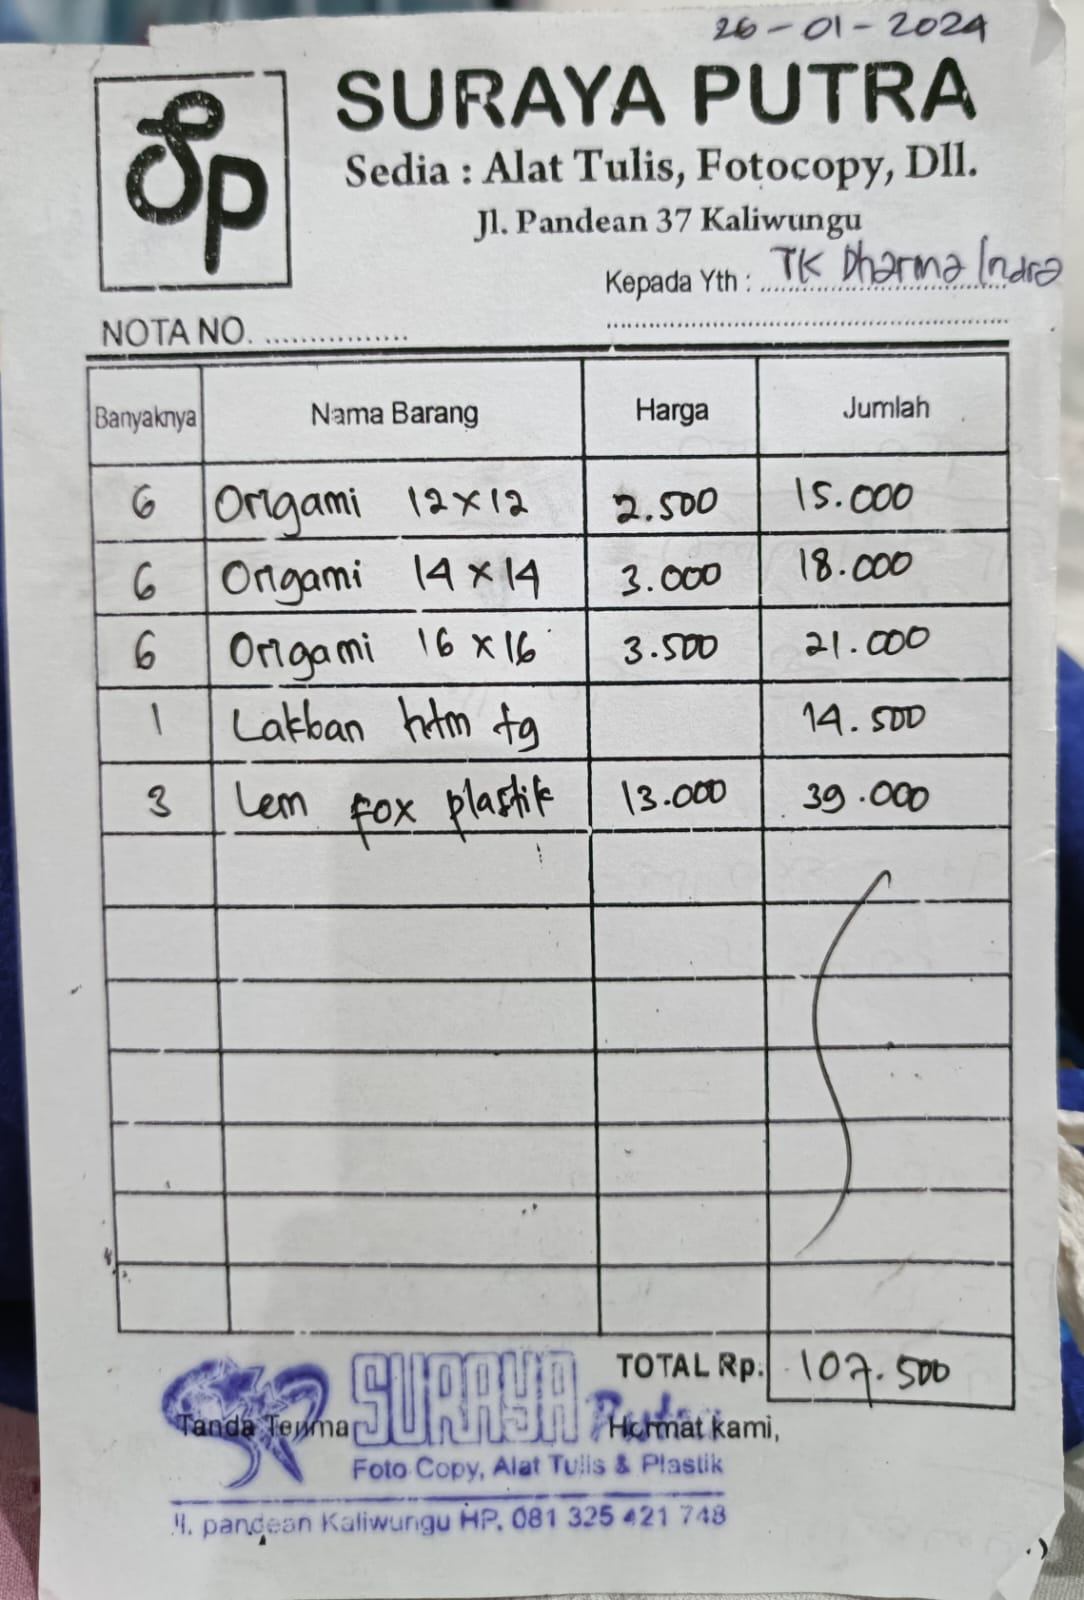 26-01-2024
SP
SURAYA PUTRA
Sedia : Alat Tulis, Fotocopy, Dll.
Jl. Pandean 37 Kaliwungu
Kepada Yth : TK Dharma Indra
NOTA NO. ................
Banyaknya Nama Barang Harga Jumlah
6 Origami 12x12 2.500 15.000
6 Origami 14x14 3.000 18.000
6 Origami 16x16 3.500 21.000
1 Lakban htm tg 14.500
3 Lem fox plastik 13.000 39.000
TOTAL Rp. 107.500
Tanda Terima Hormat kami,
SURAYA Putra
Foto Copy, Alat Tulis & Plastik
Jl. pandean Kaliwungu HP. 081 325 421 748